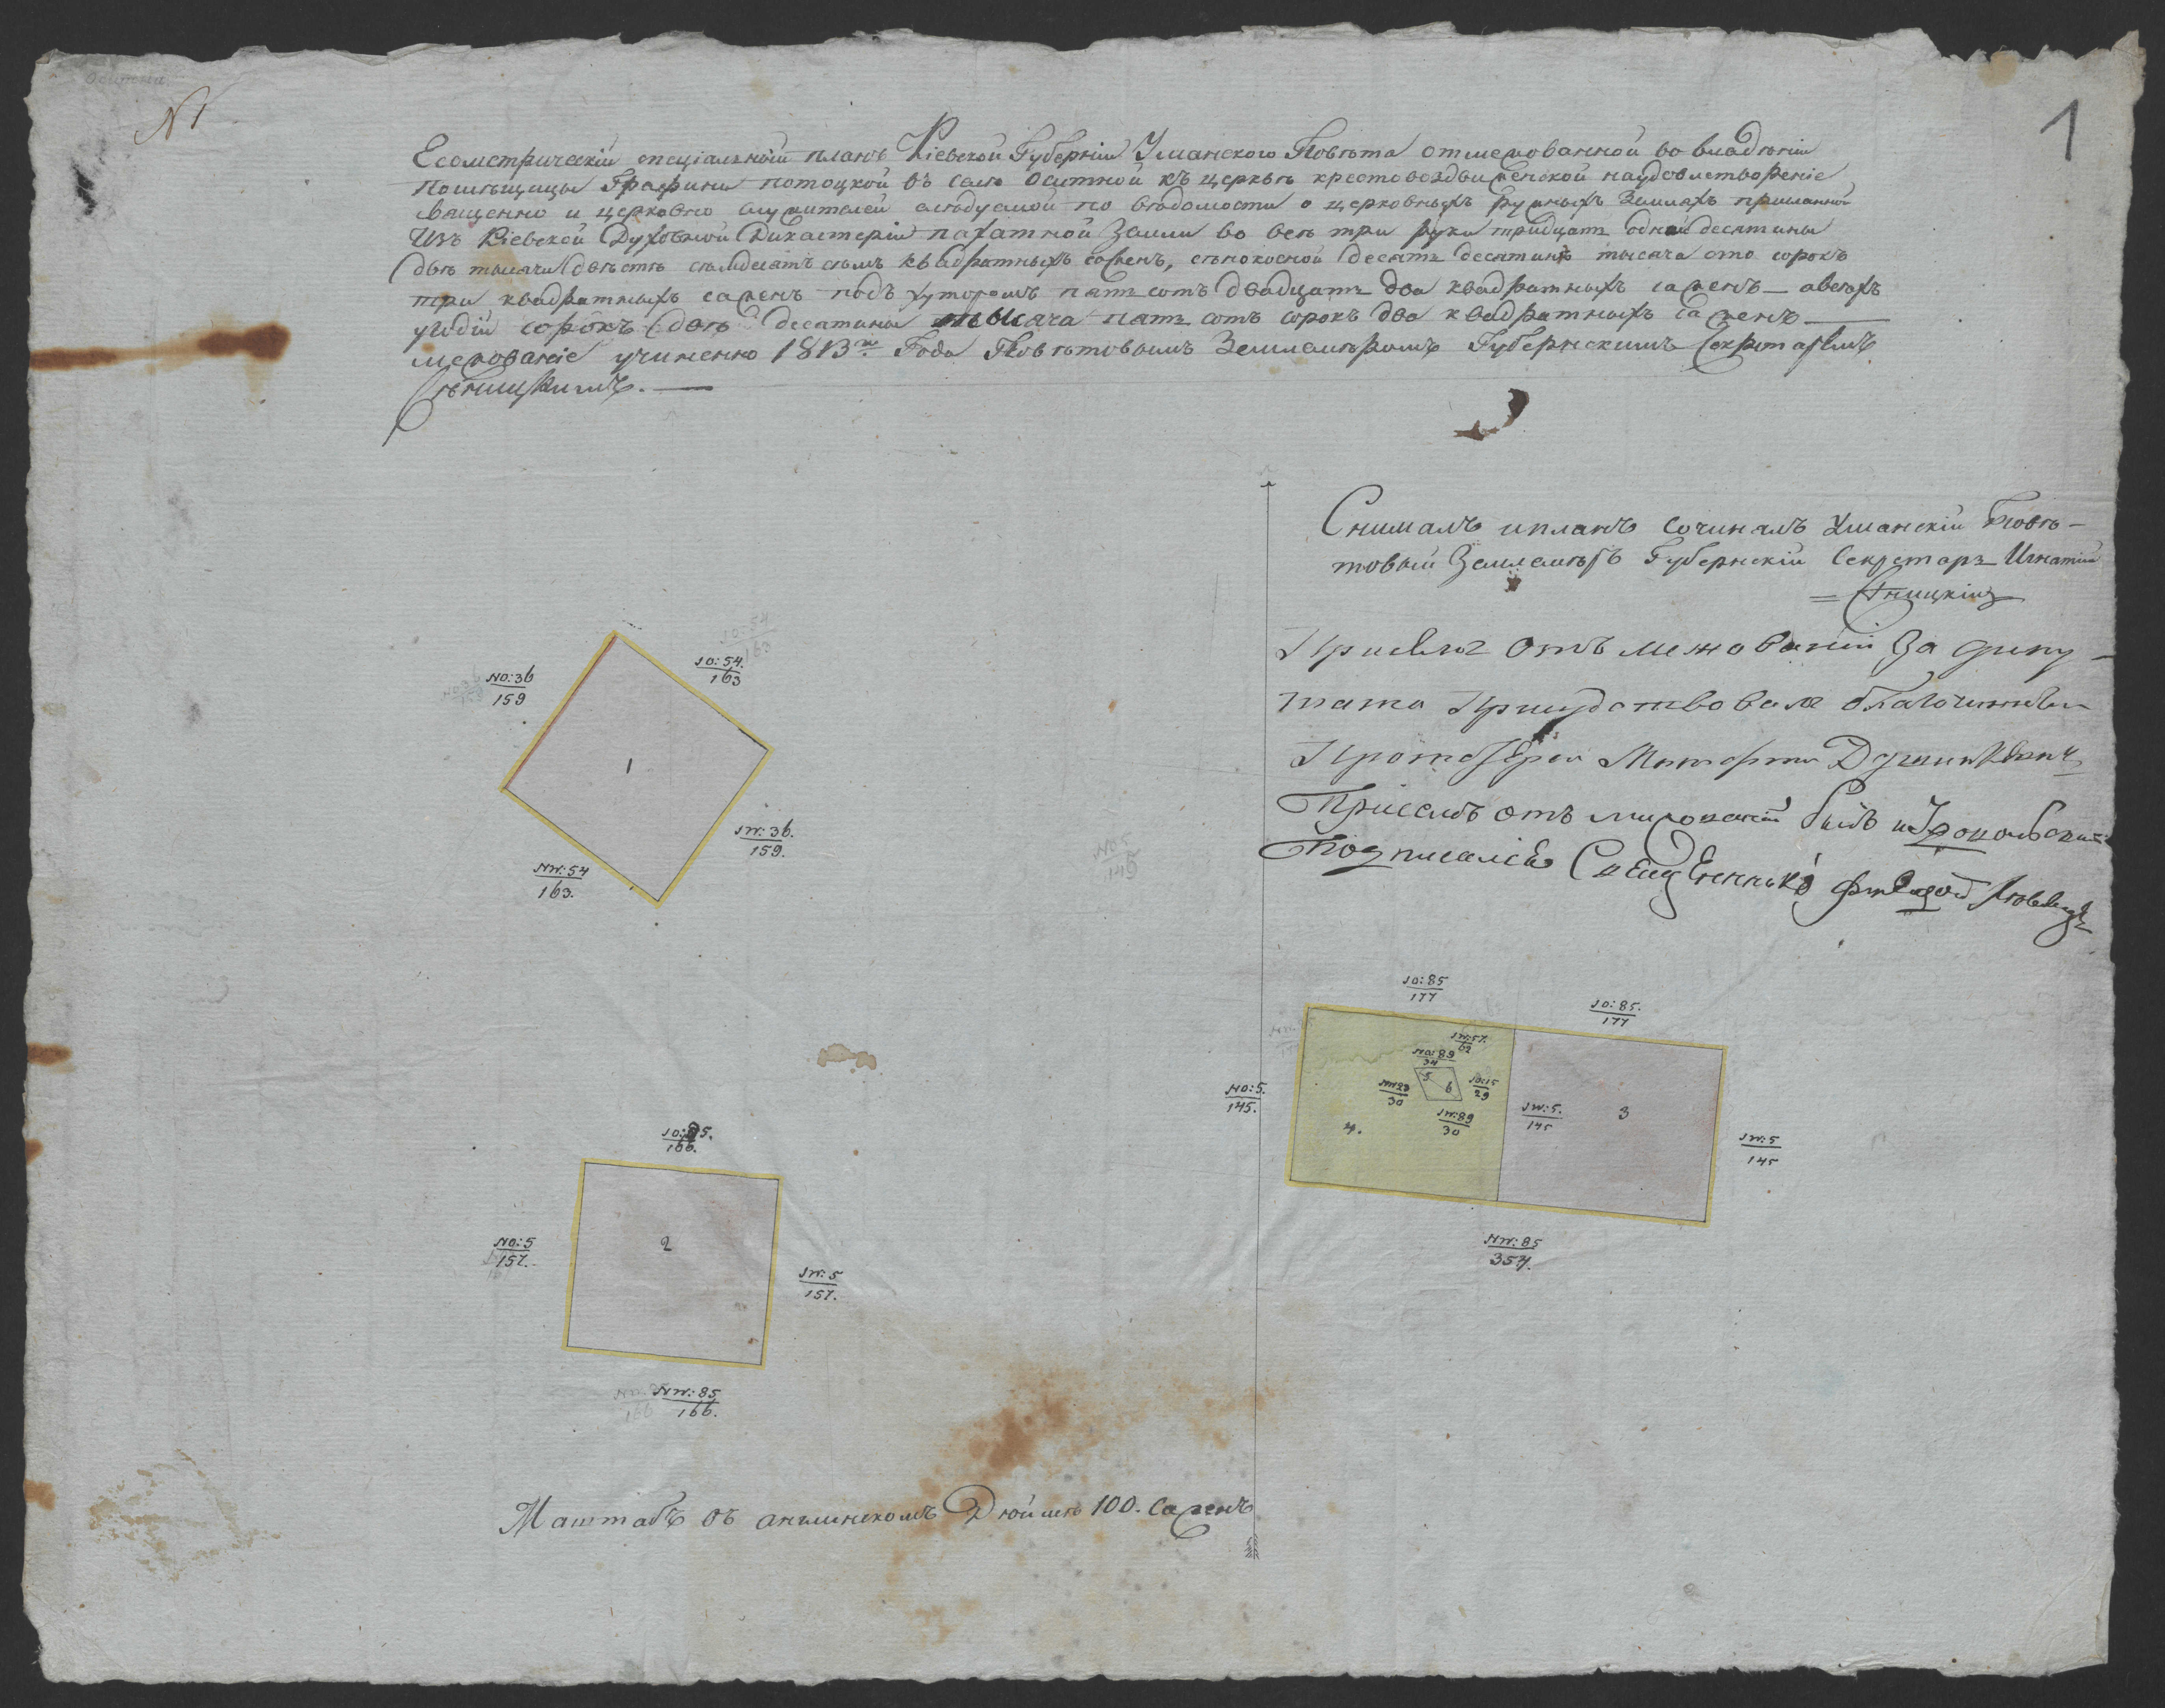 Оситна
N 1
1
Геометрическій спеціальный планъ Кіевской Губерніи Уманского Повѣта отмежованной во владѣніи
помѣщицы Графини потоцкой въ селѣ Оситной къ церквѣ крестовоздвиженской наудовлетвореніе
священно и церковно служителей слѣдуемой по вѣдомости о церковныхъ ружныхъ Земляхъ присланной
Изъ Кіевской Духовной Дикастеріи пахатной Земли во всѣ три руки тридцать одной десятины
двѣ тысячи двѣстѣ семдесятъ семъ квадратныхъ саженъ, сѣнокосной десять десятинъ тысяча сто сорокъ
три квадратныхъ саженъ подъ хуторомъ пять сотъ двадцать два квадратныхъ саженъ — авсѣхъ
угодій сорокъ двѣ десятины тысяча пять сотъ сорокъ два квадратныхъ саженъ
межованіе учиненно 1813го Года Повѣтовымъ Землемѣромъ Губернскимъ Секретаремъ
Сѣницкимъ. —
Снималъ ипланъ сочинялъ Уманскій Повѣ-
товый Землемѣръ Губернскій Секретарь Игнатій
= Сѣницкій
При сем отъ межованіи За депу-
тата Присудствовалъ благочинный
Протоіерей
Присемъ отъ межованіи былъ и
Подписался Священникъ
NO:36
159
SO:54.
163
1
SW:36.
159.
NW:54
163.
NO:5
149
SO:85
177
SO:85.
177
SW:57.
62
NO:89
34
5
6
NW:20
30
SO:15
29
SW:89
30
4.
SW:5.
145
3
NO:5.
145.
SW:5
145
NW:85
354.
SO:85.
166.
NO:5
157.
2
SW:5
157.
NW:85
166.
Маштабъ въ английскомъ Дюймѣ 100. Саженъ